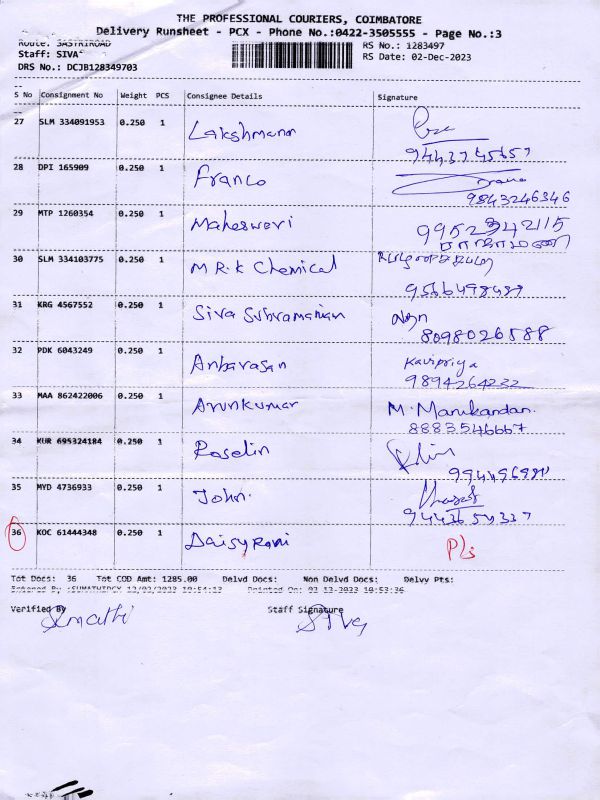 THE PROFESSIONAL COURIERS, COIMBATORE
Delivery Runsheet - PCX - Phone No.:0422-3505555 - Page No.:3
Route: SASTRIROAD
RS No.: 1283497
Staff: SIVA
RS Date: 02-Dec-2023
DRS No.: DCJB128349703
S No Consignment No Weight PCS Consignee Details Signature
27 SLM 334091953 0.250 1 Lakshmanan
28 DPI 165909 0.250 1 Franco
9843246346
29 MTP 1260354 0.250 1 Maheswari 9952342115
30 SLM 334103775 0.250 1 M R.K Chemical
31 KRG 4567552 0.250 1 Siva Subramanian
8098026588
32 PDK 6043249 0.250 1 Anbarasan Kavipriya
9894264232
33 MAA 862422006 0.250 1 Arunkumar M. Manikandan.
8883546667
34 KUR 695324184 0.250 1 Roselin
35 MYD 4736933 0.250 1 John.
36 KOC 61444348 0.250 1 Daisy Rani Pls
Tot Docs: 36 Tot COD Amt: 1285.00 Delvd Docs: Non Delvd Docs: Delvy Pts:
Entered By :SUMATHIPCX 12/02/2023 10:54:12 Printed On: 02-12-2023 10:53:36
Verified By Staff Signature
Sumathi Siva